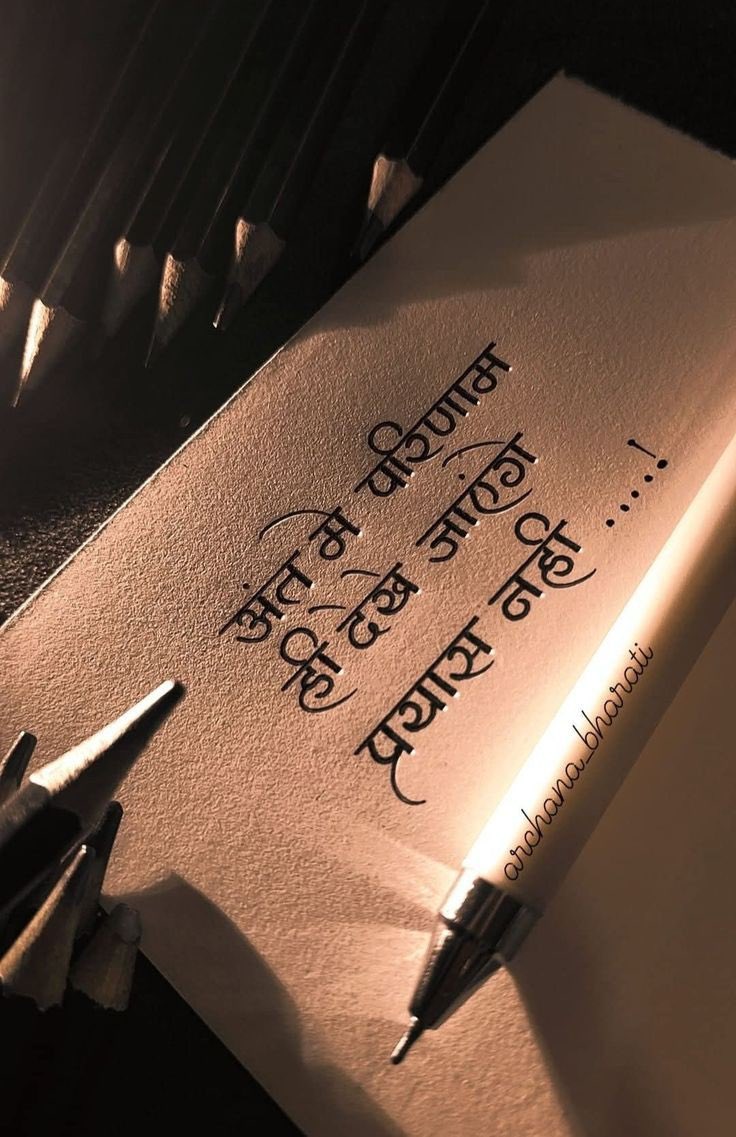 अंत मे परिणाम
ही देखे जाएंगे
प्रयास नही ....!
archana_bharati